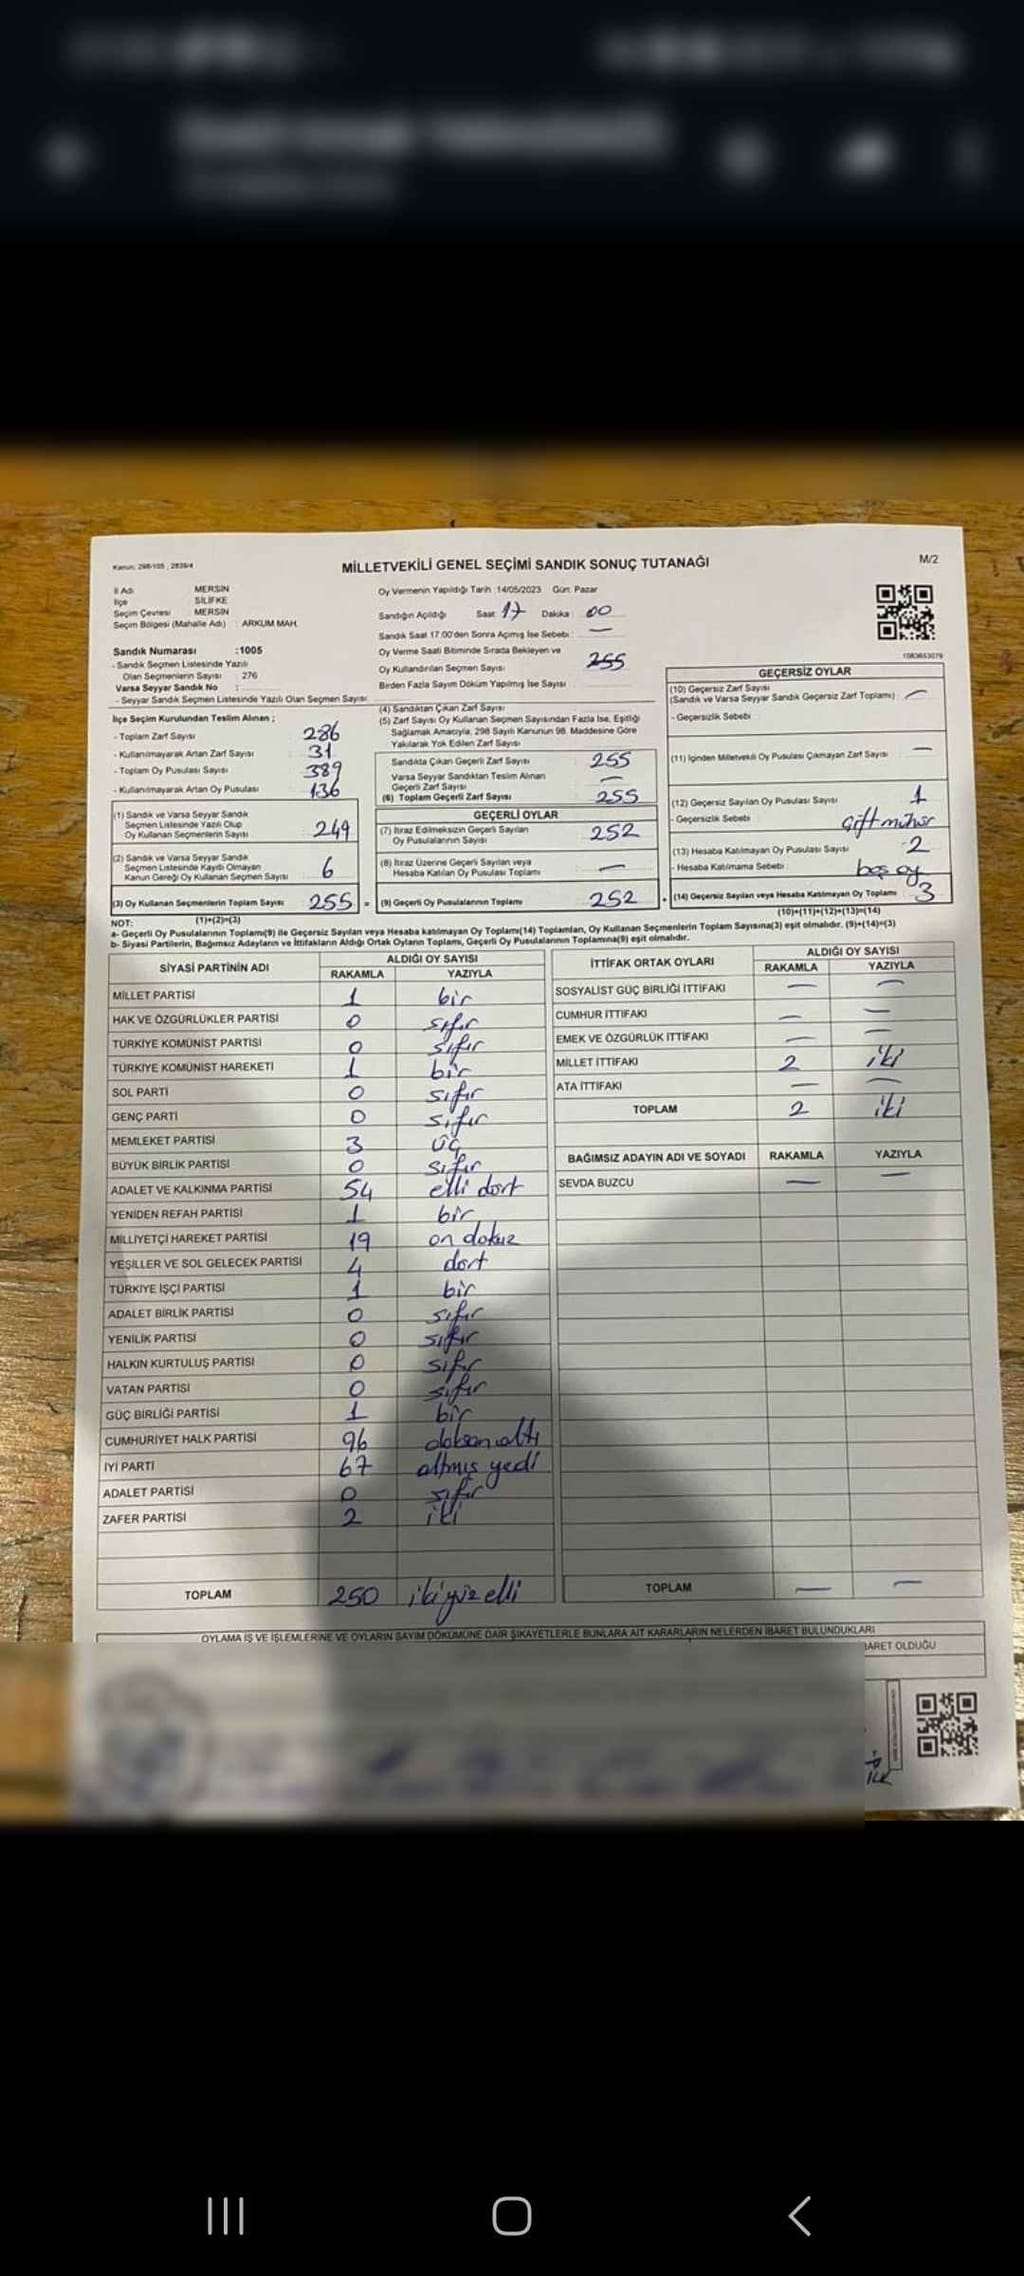 Kanun: 298/105 , 2839/4
MİLLETVEKİLİ GENEL SEÇİMİ SANDIK SONUÇ TUTANAĞI
M/2
İl Adı MERSİN
İlçe SİLİFKE
Seçim Çevresi MERSİN
Seçim Bölgesi (Mahalle Adı) : ARKUM MAH.
Sandık Numarası :1005
- Sandık Seçmen Listesinde Yazılı
Olan Seçmenlerin Sayısı : 276
Varsa Seyyar Sandık No :
- Seyyar Sandık Seçmen Listesinde Yazılı Olan Seçmen Sayısı:
Oy Vermenin Yapıldığı Tarih :14/05/2023 Gün: Pazar
Sandığın Açıldığı Saat: 17 Dakika : 00
Sandık Saat 17:00'den Sonra Açımış İse Sebebi : —
Oy Verme Saati Bitiminde Sırada Bekleyen ve
Oy Kullandırılan Seçmen Sayısı 255
Birden Fazla Sayım Döküm Yapılmış İse Sayısı :
1083653079
İlçe Seçim Kurulundan Teslim Alınan ;
- Toplam Zarf Sayısı : 286
- Kullanılmayarak Artan Zarf Sayısı : 31
- Toplam Oy Pusulası Sayısı : 389
- Kullanılmayarak Artan Oy Pusulası : 136
(1) Sandık ve Varsa Seyyar Sandık
Seçmen Listesinde Yazılı Olup
Oy Kullanan Seçmenlerin Sayısı : 249
(2) Sandık ve Varsa Seyyar Sandık
Seçmen Listesinde Kayıtlı Olmayan
Kanun Gereği Oy Kullanan Seçmen Sayısı : 6
(3) Oy Kullanan Seçmenlerin Toplam Sayısı : 255 =
(1)+(2)=(3)
(4) Sandıktan Çıkan Zarf Sayısı :
(5) Zarf Sayısı Oy Kullanan Seçmen Sayısından Fazla İse, Eşitliği
Sağlamak Amacıyla, 298 Sayılı Kanunun 98. Maddesine Göre
Yakılarak Yok Edilen Zarf Sayısı :
Sandıkta Çıkan Geçerli Zarf Sayısı : 255
Varsa Seyyar Sandıktan Teslim Alınan
Geçerli Zarf Sayısı : —
(6) Toplam Geçerli Zarf Sayısı : 255
GEÇERLİ OYLAR
(7) İtiraz Edilmeksizin Geçerli Sayılan
Oy Pusulalarının Sayısı : 252
(8) İtiraz Üzerine Geçerli Sayılan veya
Hesaba Katılan Oy Pusulası Toplamı : —
(9) Geçerli Oy Pusulalarının Toplamı : 252 +
GEÇERSİZ OYLAR
(10) Geçersiz Zarf Sayısı
(Sandık ve Varsa Seyyar Sandık Geçersiz Zarf Toplamı) : —
- Geçersizlik Sebebi :
(11) İçinden Milletvekili Oy Pusulası Çıkmayan Zarf Sayısı : —
(12) Geçersiz Sayılan Oy Pusulası Sayısı : 1
- Geçersizlik Sebebi : çift mühür
(13) Hesaba Katılmayan Oy Pusulası Sayısı : 2
- Hesaba Katılmama Sebebi : boş oy
(14) Geçersiz Sayılan veya Hesaba Katılmayan Oy Toplamı : 3
(10)+(11)+(12)+(13)=(14)
NOT:
a- Geçerli Oy Pusulalarının Toplamı(9) ile Geçersiz Sayılan veya Hesaba katılmayan Oy Toplamı(14) Toplamları, Oy Kullanan Seçmenlerin Toplam Sayısına(3) eşit olmalıdır. (9)+(14)=(3)
b- Siyasi Partilerin, Bağımsız Adayların ve İttifakların Aldığı Ortak Oyların Toplamı, Geçerli Oy Pusulalarının Toplamına(9) eşit olmalıdır.
SİYASİ PARTİNİN ADI ALDIĞI OY SAYISI
RAKAMLA YAZIYLA
MİLLET PARTİSİ 1 bir
HAK VE ÖZGÜRLÜKLER PARTİSİ 0 sıfır
TÜRKİYE KOMÜNİST PARTİSİ 0 sıfır
TÜRKİYE KOMÜNİST HAREKETİ 1 bir
SOL PARTİ 0 sıfır
GENÇ PARTİ 0 sıfır
MEMLEKET PARTİSİ 3 üç
BÜYÜK BİRLİK PARTİSİ 0 sıfır
ADALET VE KALKINMA PARTİSİ 54 elli dört
YENİDEN REFAH PARTİSİ 1 bir
MİLLİYETÇİ HAREKET PARTİSİ 19 on dokuz
YEŞİLLER VE SOL GELECEK PARTİSİ 4 dört
TÜRKİYE İŞÇİ PARTİSİ 1 bir
ADALET BİRLİK PARTİSİ 0 sıfır
YENİLİK PARTİSİ 0 sıfır
HALKIN KURTULUŞ PARTİSİ 0 sıfır
VATAN PARTİSİ 0 sıfır
GÜÇ BİRLİĞİ PARTİSİ 1 bir
CUMHURİYET HALK PARTİSİ 96 doksan altı
İYİ PARTİ 67 altmış yedi
ADALET PARTİSİ 0 sıfır
ZAFER PARTİSİ 2 iki
TOPLAM 250 iki yüz elli
İTTİFAK ORTAK OYLARI ALDIĞI OY SAYISI
RAKAMLA YAZIYLA
SOSYALİST GÜÇ BİRLİĞİ İTTİFAKI — —
CUMHUR İTTİFAKI — —
EMEK VE ÖZGÜRLÜK İTTİFAKI — —
MİLLET İTTİFAKI 2 iki
ATA İTTİFAKI — —
TOPLAM 2 iki
BAĞIMSIZ ADAYIN ADI VE SOYADI RAKAMLA YAZIYLA
SEVDA BUZCU — —
TOPLAM — —
OYLAMA İŞ VE İŞLEMLERİNE VE OYLARIN SAYIM DÖKÜMÜNE DAİR ŞİKAYETLERLE BUNLARA AİT KARARLARIN NELERDEN İBARET BULUNDUKLARI
BARET OLDUĞU